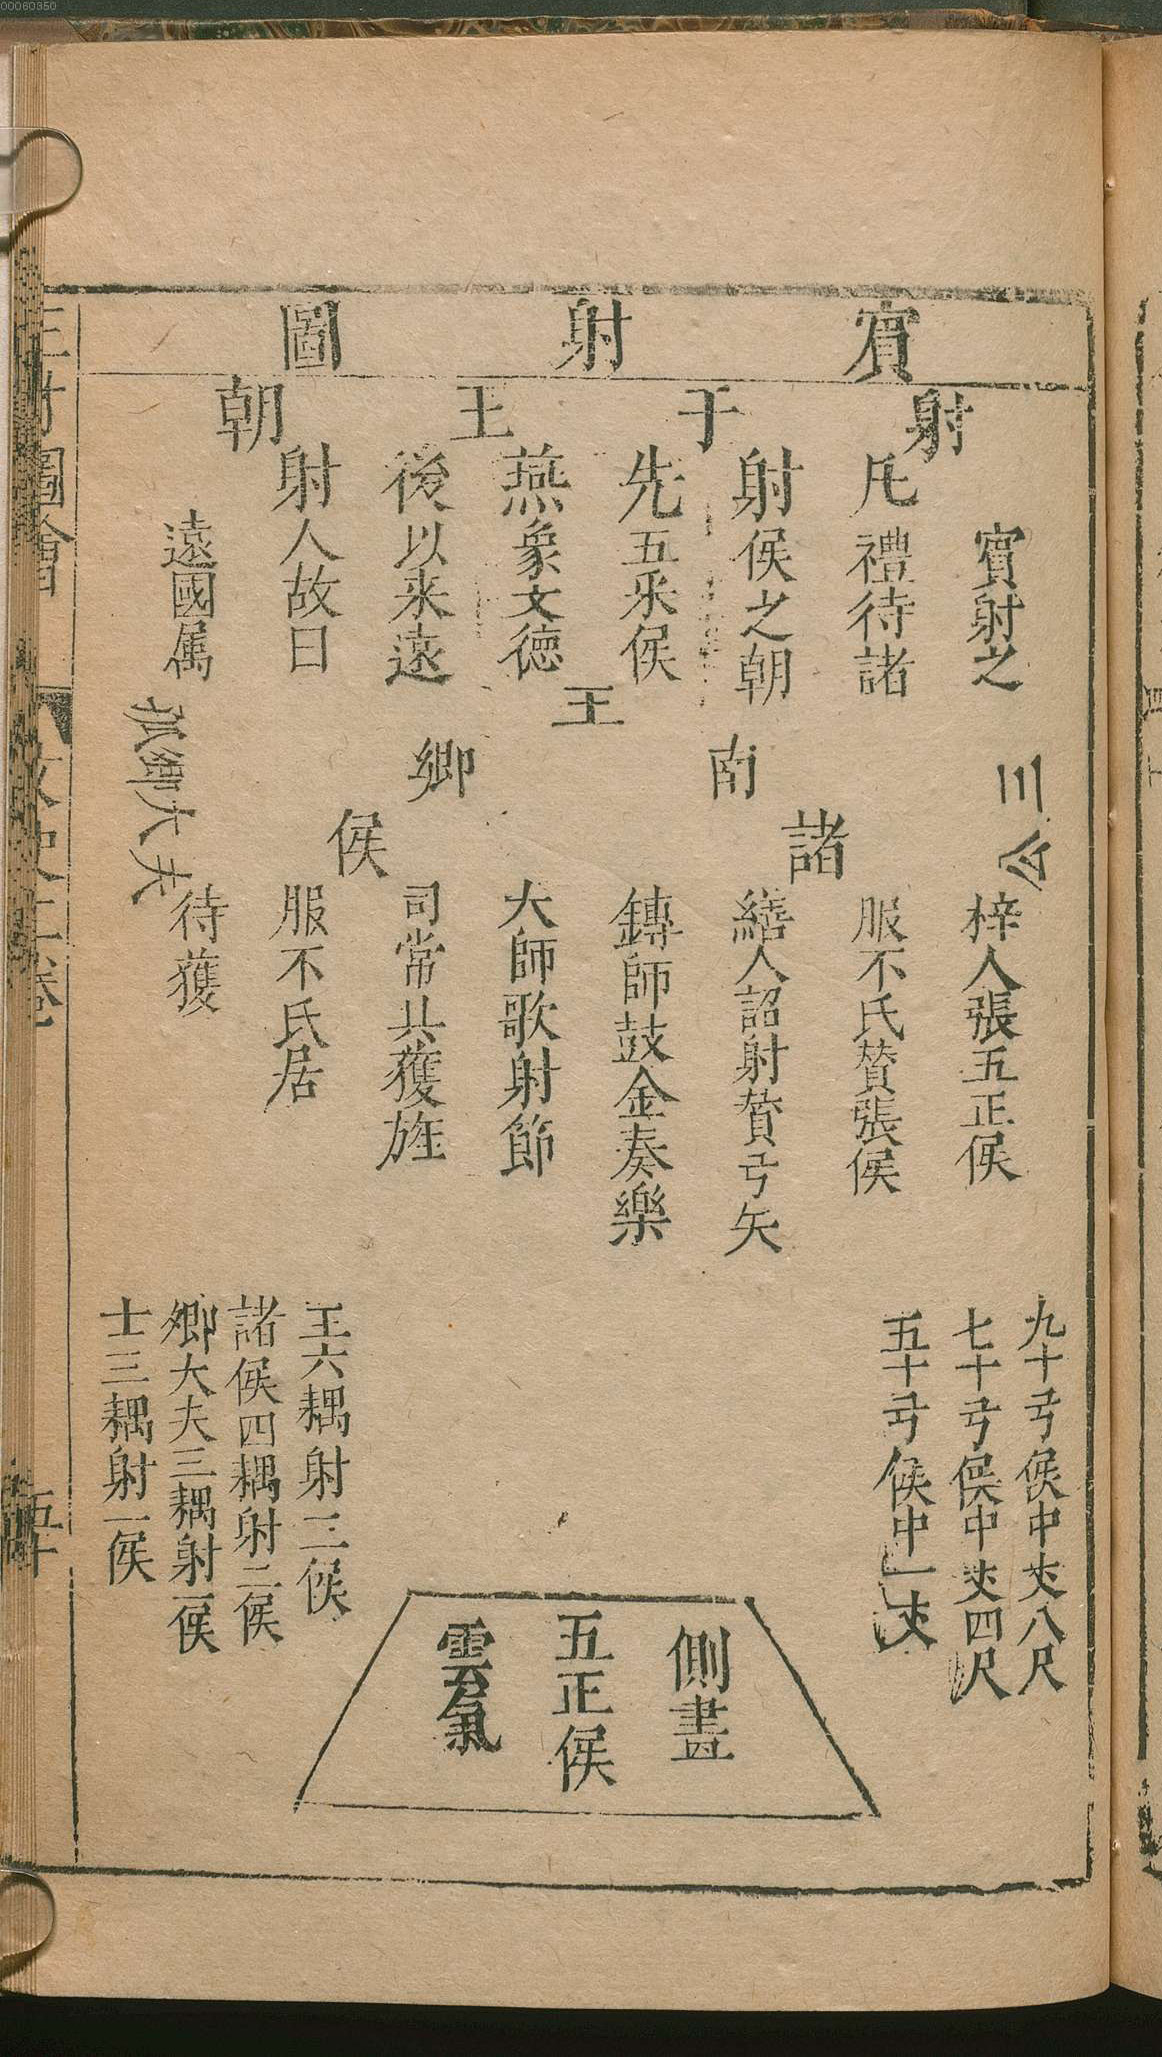 00060350
賔射圖
射于王朝
賔射之
凡禮待諸
射侯之朝
先五采侯
燕象文德
後以来遠
射人故曰
遠國属
王
南鄉
諸侯
三公
孤卿大夫
梓人張五正侯
服不氏賛張侯
繕人詔射賛弓矢
鏄師鼓金奏樂
大師歌射節
司常共獲旌
服不氏居
待獲
九十弓侯中丈八尺
七十弓侯中丈四尺
五十弓侯中一丈
王六耦射三侯
諸侯四耦射二侯
卿大夫三耦射一侯
士三耦射一侯
側畫
五正侯
雲氣